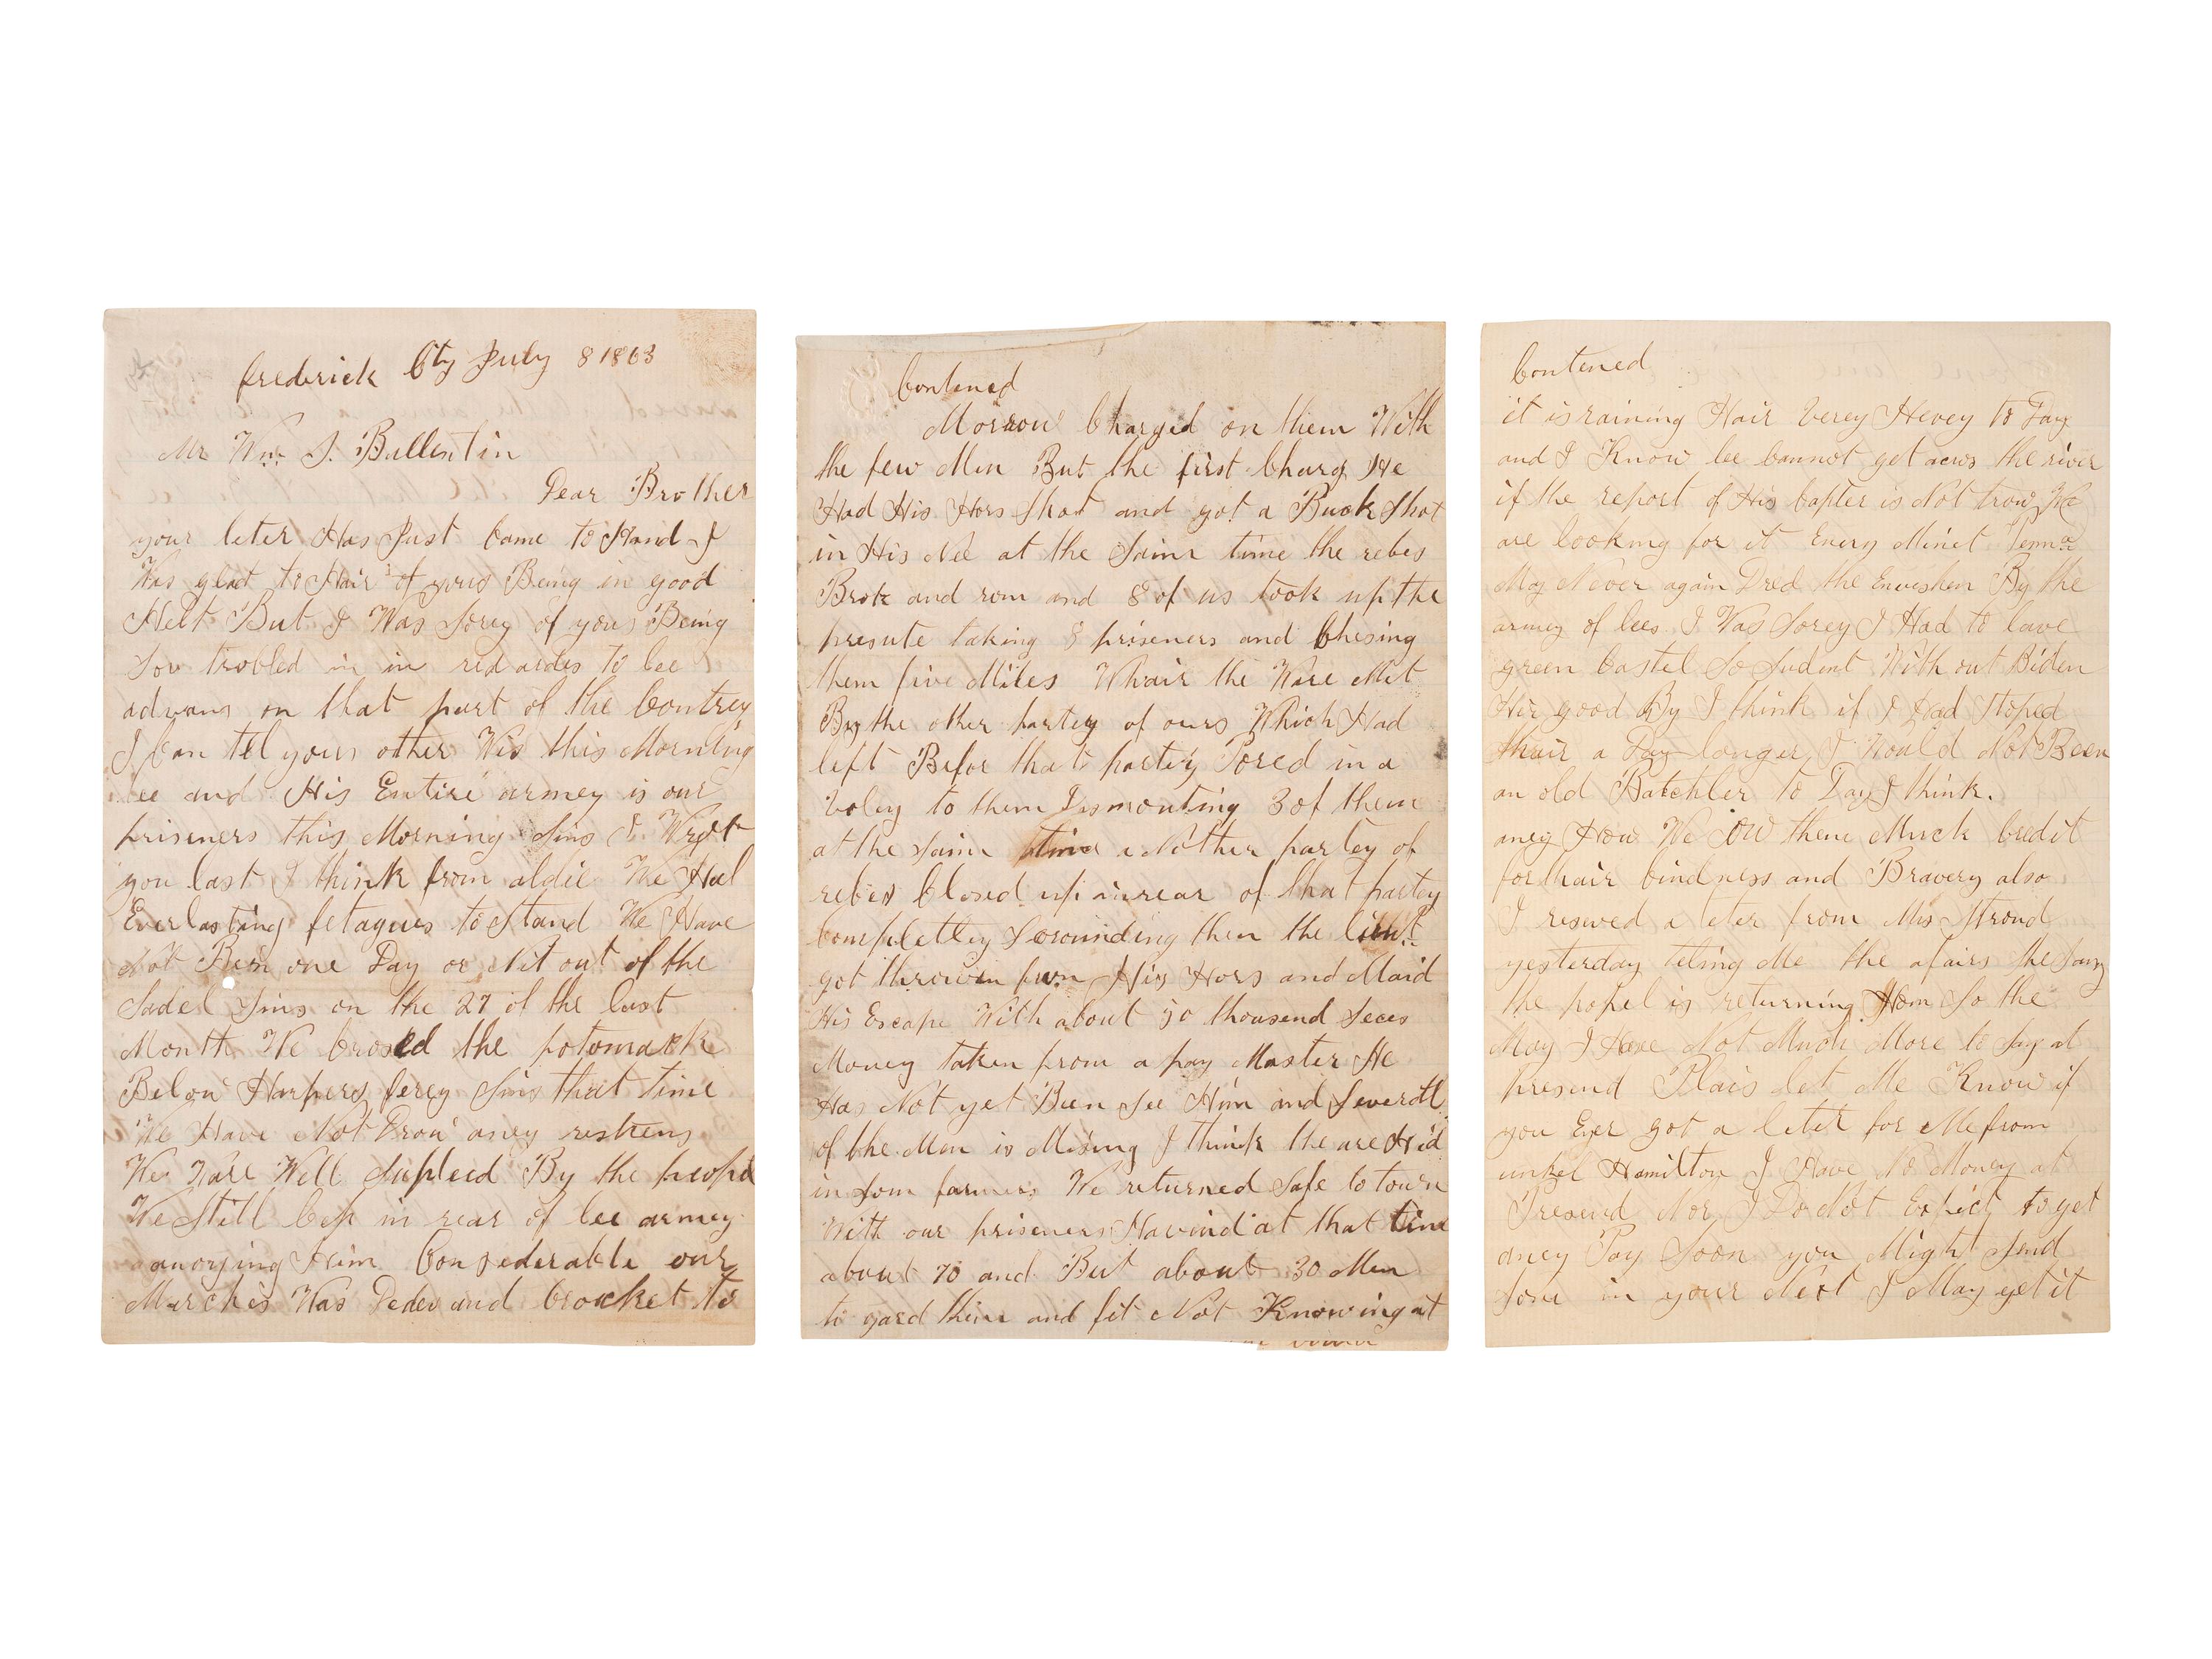 frederick City July 8 1863
Mr Wm J. Ballentin
Dear Brother
your leter Has Just Came to Hand I
Was glad to Hair of yous Being in good
Helt But I Was Sorey of yous Being
Sow trobled in in redardes to lee
advans on that part of the Contrey
I Can tel yous other Wis this Morning
lee and His Entire armey is our
prisners this Morning Sins I Wrot
you last I think from aldie We Had
Everlasting fetagues to Stand We Have
Not Bein one Day or Nit out of the
Sadel Sins on the 27 of the last
Month We Crosed the potomack
Below Harpers ferey Sins that time
We Have Not Drow aney reshens
We Ware Well Supleed By the peopel
We Still Cep in rear of lee armey
anoying Him Consederable our
Marches Was Dedev and Crocket to
Contened
Morrow Charged on them With
the few Men But the first Charg He
Had His Hors Shot and got a Buck Shot
in His Nee at the Saim time the rebes
Brok and ron and 8 of us took up the
presute taking 8 priseners and Chesing
them five Miles Whair the Ware Met
By the other partey of ours Which Had
left Befor that partey Pored in a
voley to them Dismounting 3 of them
at the Saim time a Nother partey of
rebes Closed up in rear of that partey
Completley Serounding them the lieut
got throwen from His Hors and Maid
His Escape With about 50 thousend Seces
Money taken from a pay Master He
Has Not yet Been See Him and Severell
of the Men is Mising I think the are Hid
in Som farmers We returned Safe to town
With our priseners Havind at that time
about 70 and But about 30 Men
to gard them and fit Not Knowing at
Contened
it is raining Hair verey Hevey to Day
and I Know lee Cannot get acros the river
if the report of His Capter is Not trow We
are looking for it Every Minet Penna
May Never again Dred the Enveshen By the
armey of lees I Was Sorey I Had to lave
green Castel So Sudent With out Biden
Hir good By I think if I Had Stoped
thair a Day longer I Would Not Been
an old Batchler to Day I think.
aney How We OW them Much Credit
for thair Cindness and Bravery also
I reseved a leter from Mis Stroud
yesterday teling Me the afairs She Says
the popel is returning Hom So the
May I Have Not Much More to Say at
presend Plais let Me Know if
you Ever got a leter for Me from
unkel Hamilton I Have No Money at
Presend Nor I Do Not Expect to get
aney Pay Soon you Might Send
Som in your Next I May get it